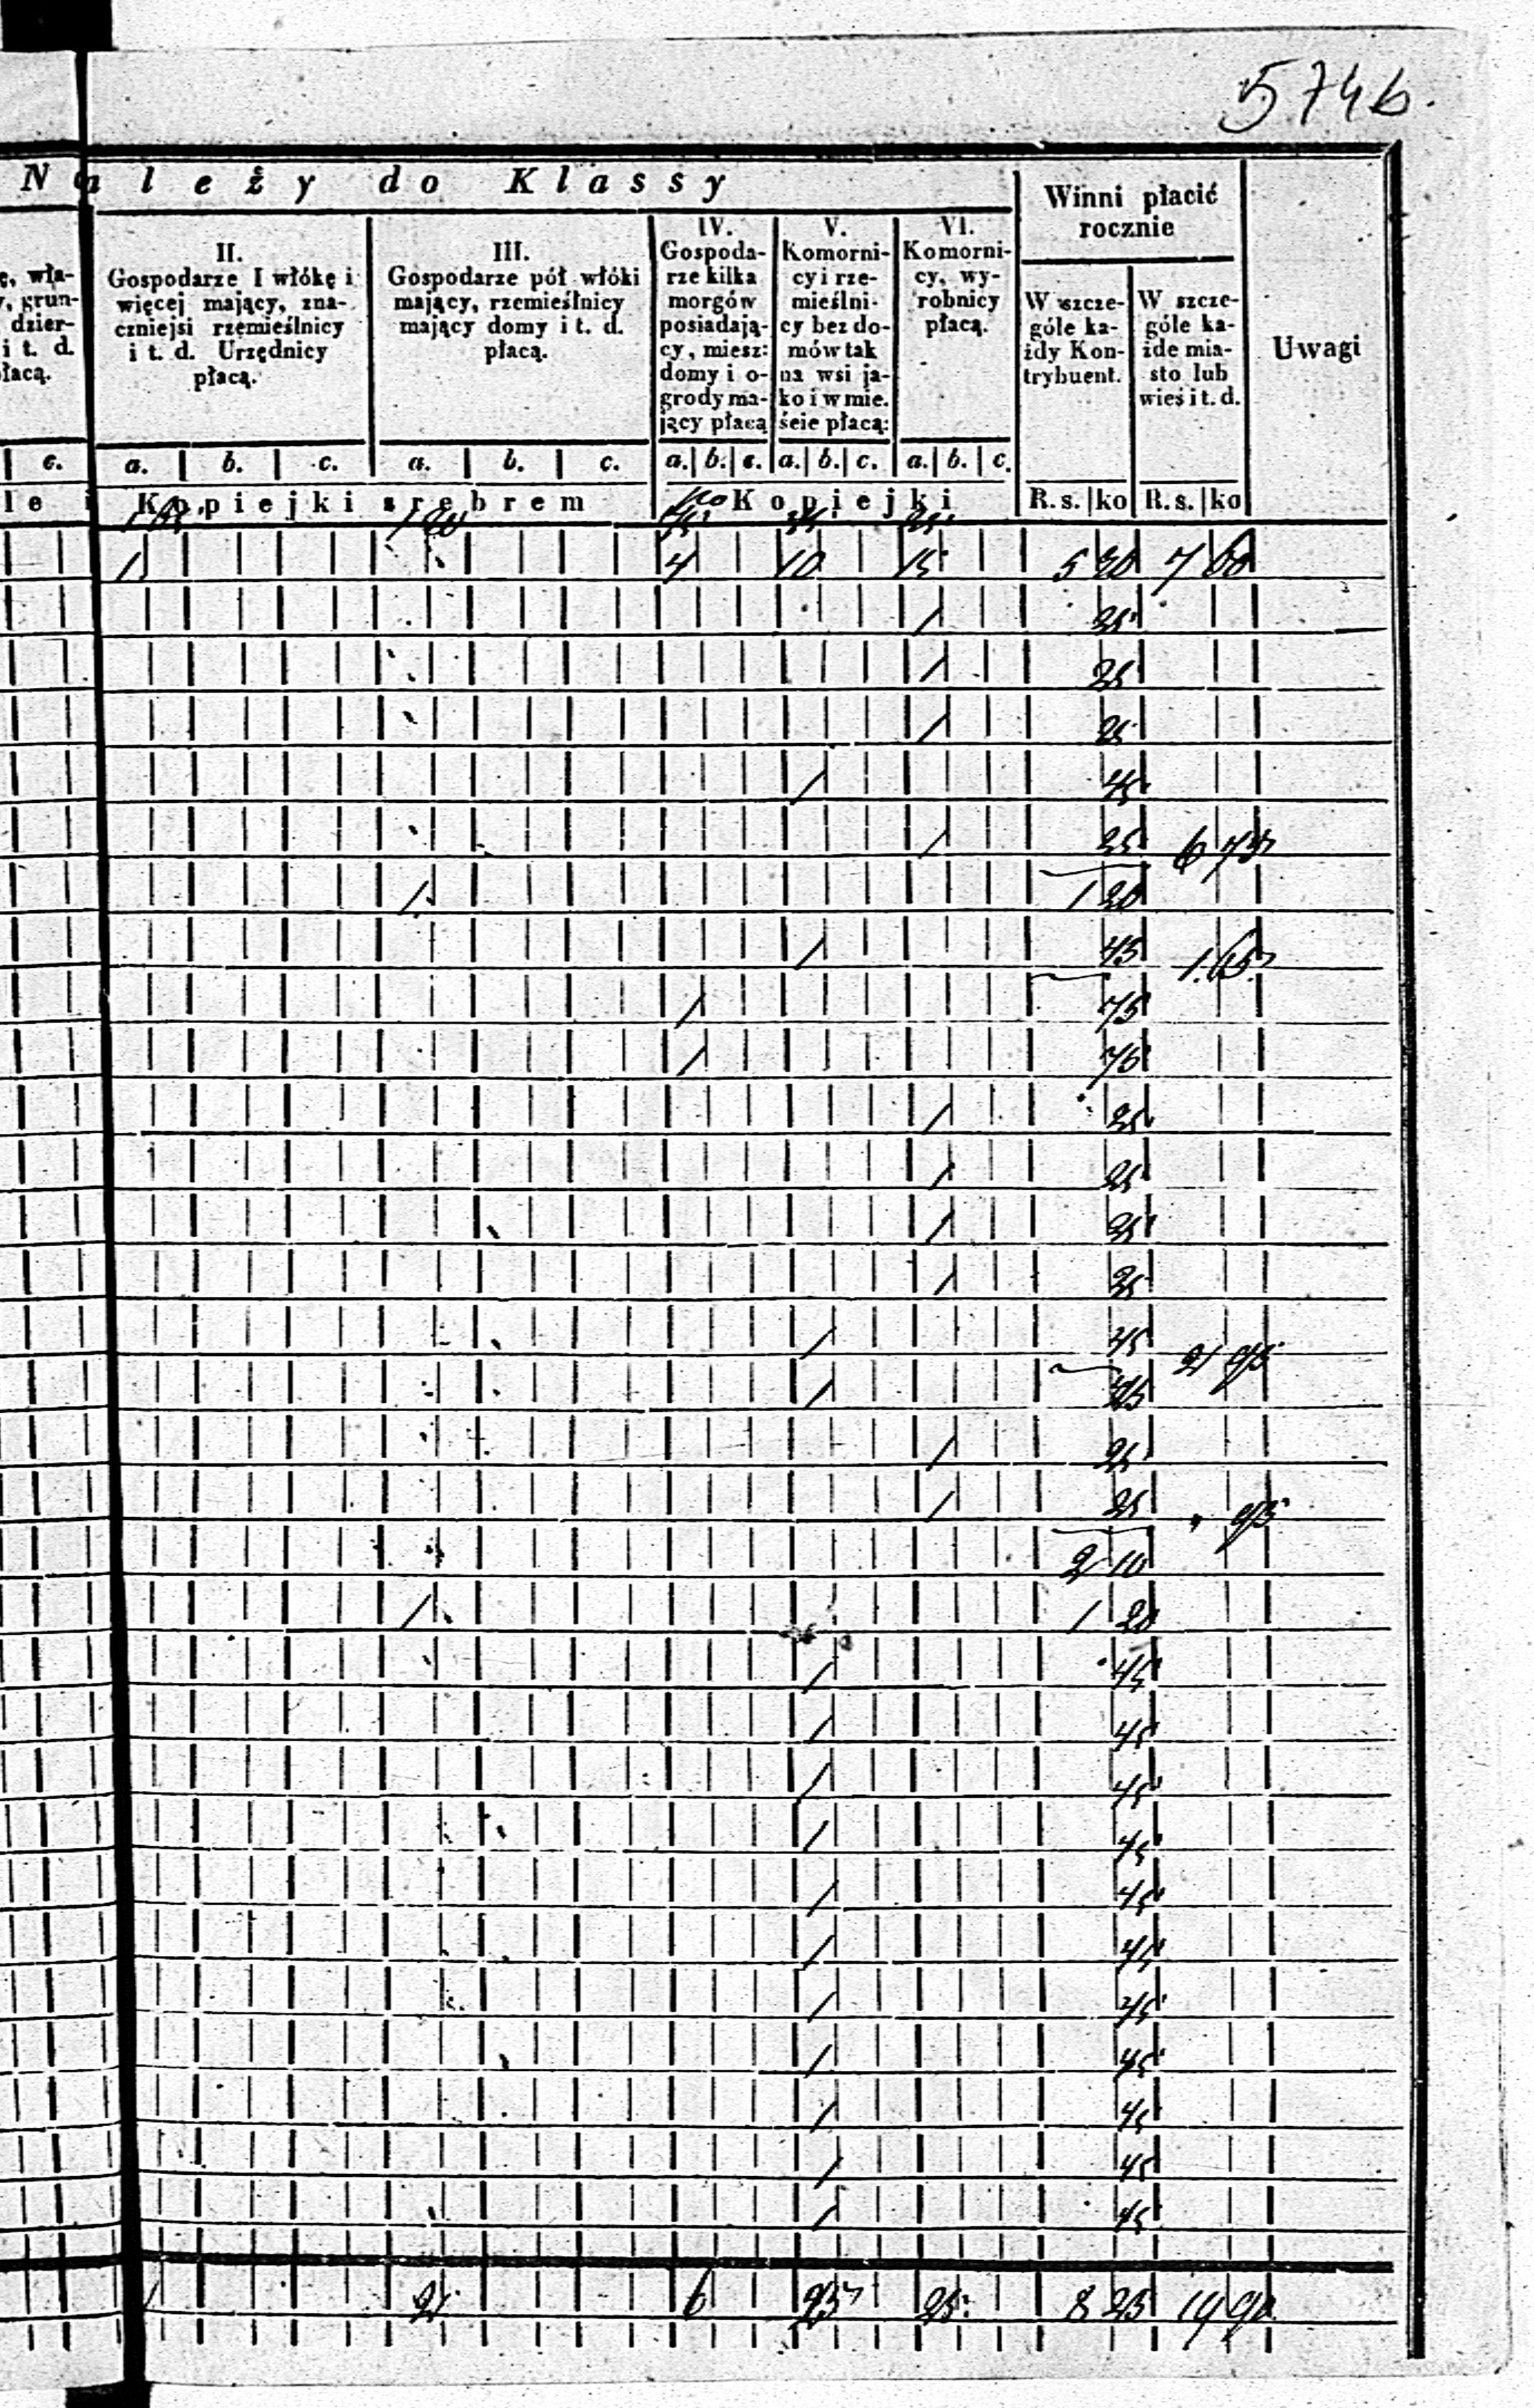 574b.
Należy do Klassy
Winni płacić
rocznie
Uwagi
ę, wła-
, grun-
dzier-
i t. d.
płacą.
II.
Gospodarze I włókę i
więcej mający, zna-
czniejsi rzemieślnicy
i t. d. Urzędnicy
płacą.
III.
Gospodarze pół włóki
mający, rzemieślnicy
mający domy i t. d.
płacą.
IV.
Gospoda-
rze kilka
morgów
posiadają-
cy, miesz:
domy i o-
grody ma-
jący płacą
V.
Komorni-
cy i rze-
mieślni-
cy bez do-
mów tak
na wsi ja-
ko i w mie.
ście płacą:
VI.
Komorni-
cy, wy-
robnicy
płacą.
W szcze-
góle ka-
żdy Kon-
trybuent.
W szcze-
góle ka-
żde mia-
sto lub
wieś i t. d.
c. a. b. c. a. b. c. a. b. c. a. b. c. a. b. c.
le i Kopiejki srebrem Kopiejki R. s. ko R. s. ko
1 4 10 15 5 30 7
1 25
1 25
1 25
1 45
1 25 6
1 1 20
1 45 1
1 75
1 75
1 25
1 25
1 25
1 25
1 45 2 95
1 45
1 25
1 25 95
2 10
1 1 20
1 45
1 45
1 45
1 45
1 45
1 45
1 45
1 45
1 45
1 45
1 45
1 2 6 23 25 8 25 19 90